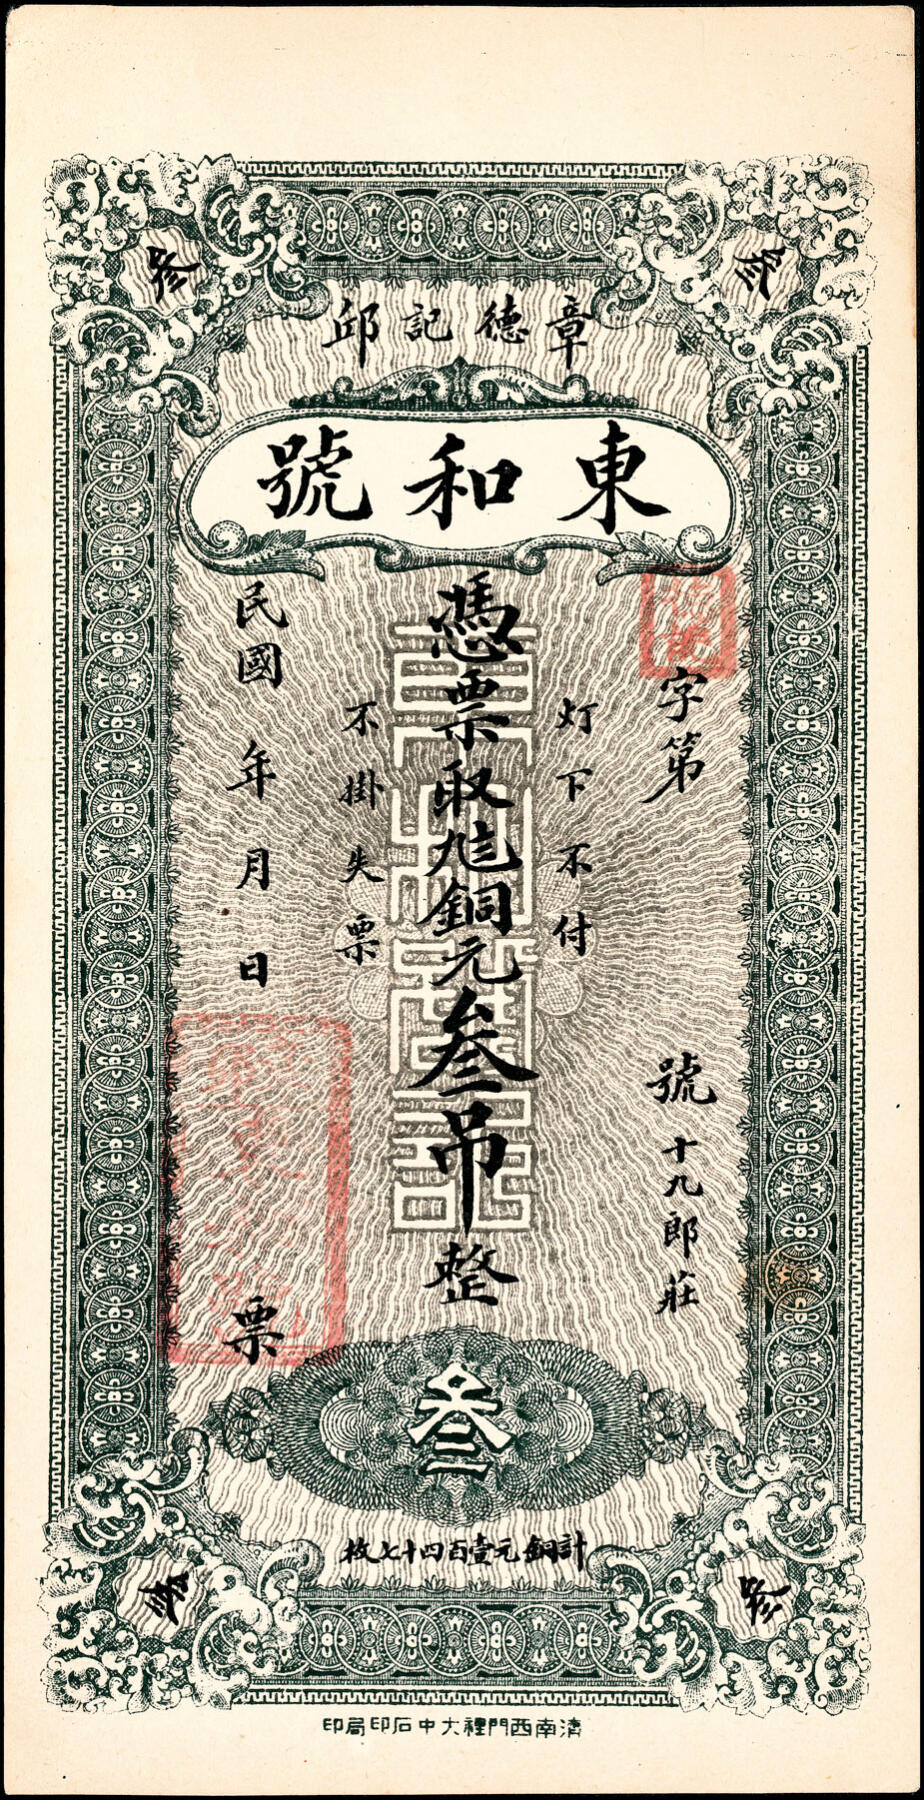 章德記邱
東和號
叁
叁
字第 號 十九郎莊
灯下不付
憑票取兌銅元叁吊整
不掛失票
民國 年 月 日 票
叁
計銅元壹百四十七枚
叁
叁
濟南西門裡大中石印局印